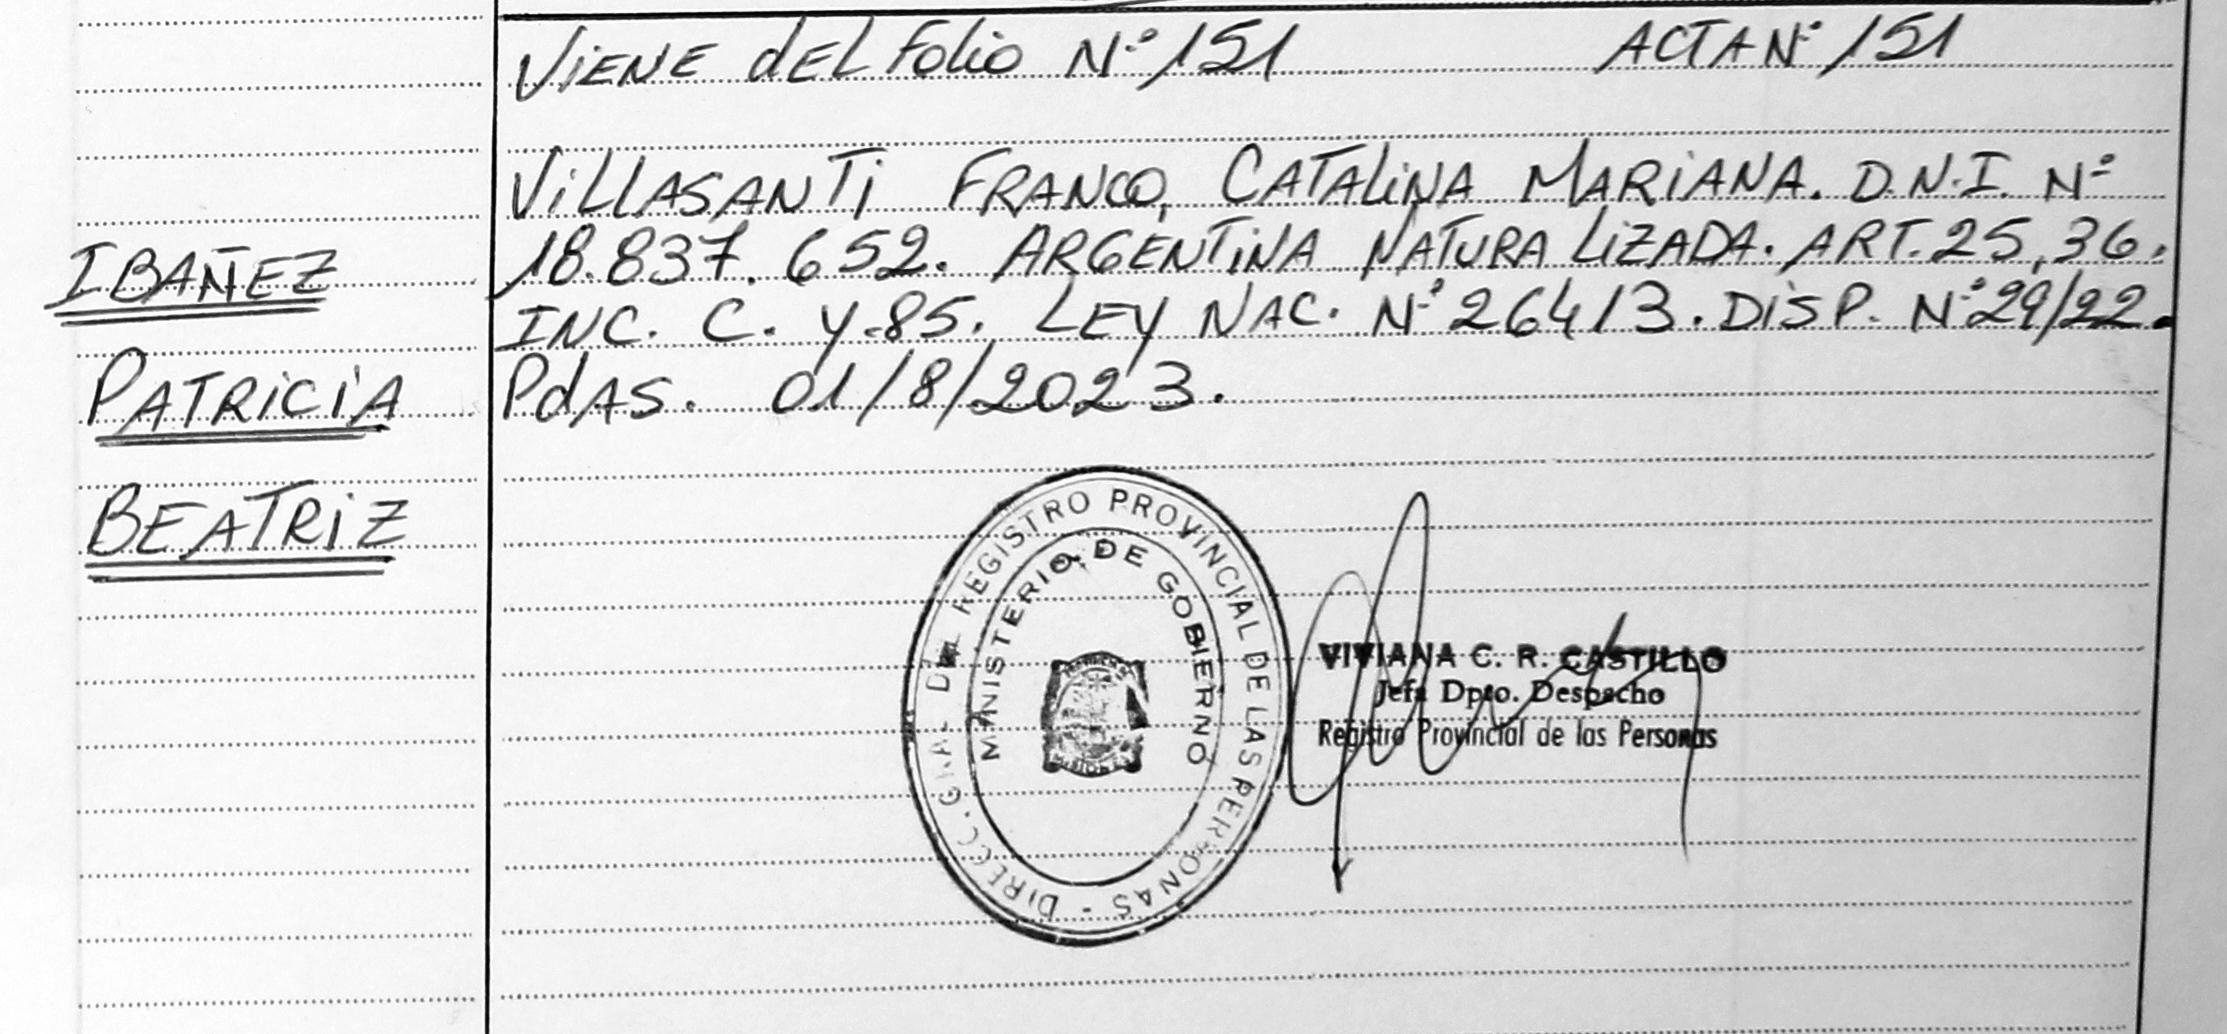 ViENE dEL Folio N° 151 ACTA N° 151
IBAÑEZ
PATRiCiA
BEATRiZ
ViLLASANTi FRANCO, CATALiNA MARiANA. D.N.I. N°
18.837.652. ARGENTiNA NATURALiZADA. ART. 25, 36.
INC. C. y 85. LEY NAC. N° 26413. DiSP. N° 29/22.
PdAS. 01/8/2023.
DIRECC. GRAL DEL REGISTRO PROVINCIAL DE LAS PERSONAS -
MINISTERIO DE GOBIERNO
MISIONES
VIVIANA C. R. CASTILLO
Jefa Dpto. Despacho
Registro Provincial de las Personas